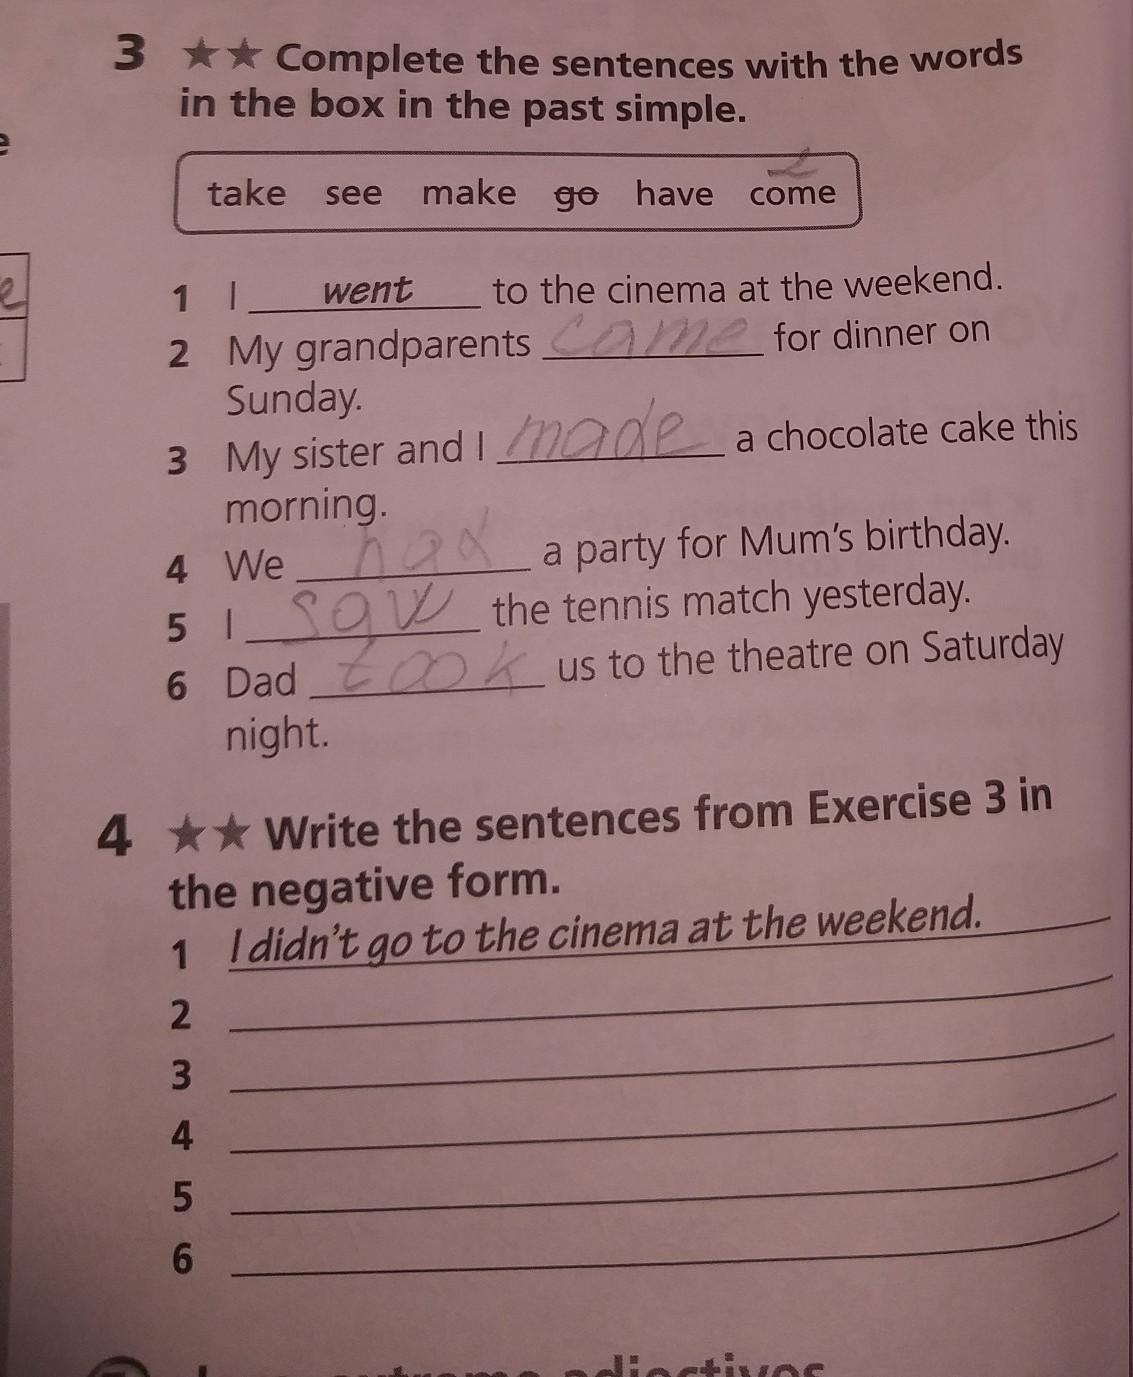 3 ★★ Complete the sentences with the words
in the box in the past simple.
take see make go have come
1 I went to the cinema at the weekend.
2 My grandparents came for dinner on
Sunday.
3 My sister and I made a chocolate cake this
morning.
4 We had a party for Mum's birthday.
5 I saw the tennis match yesterday.
6 Dad took us to the theatre on Saturday
night.
4 ★★ Write the sentences from Exercise 3 in
the negative form.
1 I didn't go to the cinema at the weekend.
2
3
4
5
6
adjectives